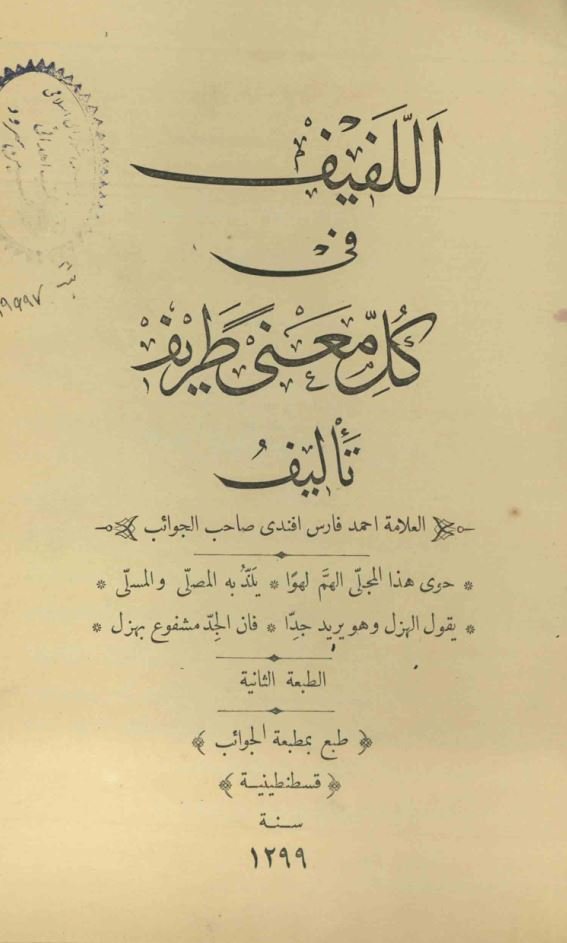 اَللَّفِيفُ
فى
كُلِّ مَعْنىً طَرِيفٍ
تَأْلِيفُ
العلامة احمد فارس افندى صاحب الجوائب
* حوى هذا المجلّى الهمَّ لهوًا * يلَذّ به المصلّى والمسلّى *
* يقول الهزل وهو يريد جدًا * فان الجِدّ مشفوع بهزل *
الطبعة الثانية
﴿ طبع بمطبعة الجوائب ﴾
﴿ قسطنطينية ﴾
سنة
١٢٩٩